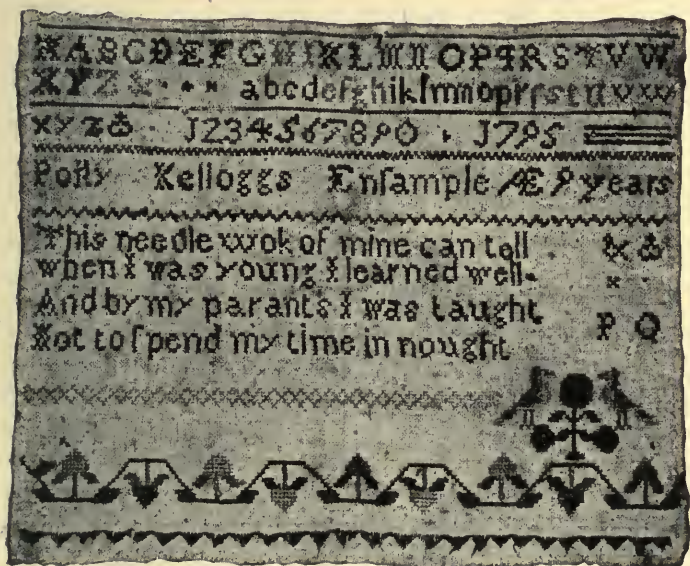 ABCDEFGHIKLMNOPQRSTVW
XYZ& abcdefghiklmnopqrſstuvxw
xyz& 1234567890 1795
Polly Kelloggs Enſample Æ 9 years
This needle wrok of mine can tell &
when I was young I learned well
And by my parants I was taught P Q
Not to ſpend my time in nought